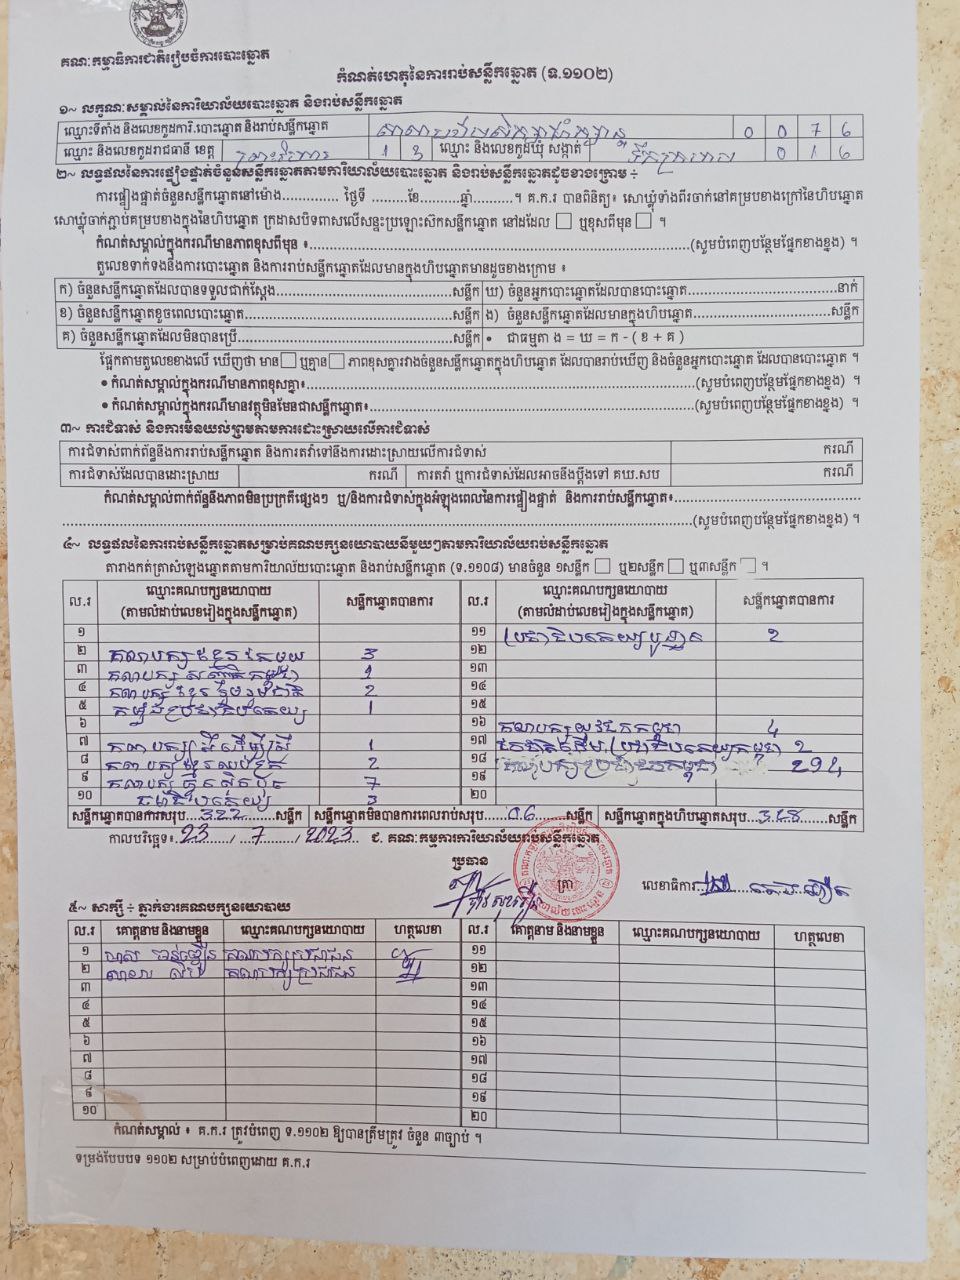 គណៈកម្មាធិការជាតិរៀបចំការបោះឆ្នោត
កំណត់ហេតុនៃការរាប់សន្លឹកឆ្នោត (ទ.១១០២)
១~ លក្ខណៈសម្គាល់នៃការិយាល័យបោះឆ្នោត និងរាប់សន្លឹកឆ្នោត
ឈ្មោះទីតាំង និងលេខកូដការិ.បោះឆ្នោត និងរាប់សន្លឹកឆ្នោត 0 0 7 6
ឈ្មោះ និងលេខកូដរាជធានី ខេត្ត ព្រះវិហារ 1 3 ឈ្មោះ និងលេខកូដឃុំ សង្កាត់ 0 1 6
២~ លទ្ធផលនៃការផ្ទៀងផ្ទាត់ចំនួនសន្លឹកឆ្នោតតាមការិយាល័យបោះឆ្នោត និងរាប់សន្លឹកឆ្នោតដូចខាងក្រោម ÷
ការផ្ទៀងផ្ទាត់ចំនួនសន្លឹកឆ្នោតនៅម៉ោង.............. ថ្ងៃទី .........ខែ..........ឆ្នាំ..........។ គ.ក.រ បានពិនិត្យ៖ សោឃ្លុំទាំងពីរចាក់នៅគម្របខាងក្រៅនៃហិបឆ្នោត
សោឃ្លុំចាក់ភ្ជាប់គម្របខាងក្នុងនៃហិបឆ្នោត ក្រដាសបិទពាសលើសន្ទះប្រឡោះស៊កសន្លឹកឆ្នោត នៅដដែល ឬខុសពីមុន ។
កំណត់សម្គាល់ក្នុងករណីមានភាពខុសពីមុន ៖..........(សូមបំពេញបន្ថែមផ្នែកខាងខ្នង) ។
តួលេខទាក់ទងនឹងការបោះឆ្នោត និងការរាប់សន្លឹកឆ្នោតដែលមានក្នុងហិបឆ្នោតមានដូចខាងក្រោម ៖
ក) ចំនួនសន្លឹកឆ្នោតដែលបានទទួលជាក់ស្តែង..........សន្លឹក ឃ) ចំនួនអ្នកបោះឆ្នោតដែលបានបោះឆ្នោត..........នាក់
ខ) ចំនួនសន្លឹកឆ្នោតខូចពេលបោះឆ្នោត..........សន្លឹក ង) ចំនួនសន្លឹកឆ្នោតដែលមានក្នុងហិបឆ្នោត..........សន្លឹក
គ) ចំនួនសន្លឹកឆ្នោតដែលមិនបានប្រើ..........សន្លឹក • ជាធម្មតា ង = ឃ = ក - ( ខ + គ )
ផ្អែកតាមតួលេខខាងលើ ឃើញថា មាន ឬគ្មាន ភាពខុសគ្នារវាងចំនួនសន្លឹកឆ្នោតក្នុងហិបឆ្នោត ដែលបានរាប់ឃើញ និងចំនួនអ្នកបោះឆ្នោត ដែលបានបោះឆ្នោត ។
• កំណត់សម្គាល់ក្នុងករណីមានភាពខុសគ្នា៖..........(សូមបំពេញបន្ថែមផ្នែកខាងខ្នង) ។
• កំណត់សម្គាល់ក្នុងករណីមានវត្ថុមិនមែនជាសន្លឹកឆ្នោត៖..........(សូមបំពេញបន្ថែមផ្នែកខាងខ្នង) ។
៣~ ការជំទាស់ និងការមិនយល់ព្រមតាមការដោះស្រាយលើការជំទាស់
ការជំទាស់ពាក់ព័ន្ធនឹងការរាប់សន្លឹកឆ្នោត និងការតវ៉ាទៅនឹងការដោះស្រាយលើការជំទាស់ ករណី
ការជំទាស់ដែលបានដោះស្រាយ ករណី ការតវ៉ា ឬការជំទាស់ដែលអាចនឹងប្តឹងទៅ គឃ.សប ករណី
កំណត់សម្គាល់ពាក់ព័ន្ធនឹងភាពមិនប្រក្រតីផ្សេងៗ ឬ/និងការជំទាស់ក្នុងអំឡុងពេលនៃការផ្ទៀងផ្ទាត់ និងការរាប់សន្លឹកឆ្នោត៖..........
..........(សូមបំពេញបន្ថែមផ្នែកខាងខ្នង) ។
៤~ លទ្ធផលនៃការរាប់សន្លឹកឆ្នោតសម្រាប់គណបក្សនយោបាយនីមួយៗតាមការិយាល័យរាប់សន្លឹកឆ្នោត
តារាងកត់ត្រាសំឡេងឆ្នោតតាមការិយាល័យបោះឆ្នោត និងរាប់សន្លឹកឆ្នោត (ទ.១១០៨) មានចំនួន ១សន្លឹក ឬ២សន្លឹក ឬ៣សន្លឹក ។
ល.រ ឈ្មោះគណបក្សនយោបាយ (តាមលំដាប់លេខរៀងក្នុងសន្លឹកឆ្នោត) សន្លឹកឆ្នោតបានការ ល.រ ឈ្មោះគណបក្សនយោបាយ (តាមលំដាប់លេខរៀងក្នុងសន្លឹកឆ្នោត) សន្លឹកឆ្នោតបានការ
១ ១១ ប្រជាធិបតេយ្យមូលដ្ឋាន 2
២ គណបក្ស ខ្មែរតែមួយ 3 ១២
៣ គណបក្ស សញ្ជាតិកម្ពុជា 1 ១៣
៤ គណបក្ស ខ្មែររួបរួមជាតិ 2 ១៤
៥ កម្លាំងប្រជាធិបតេយ្យ 1 ១៥
៦ ១៦ គណបក្សយុវជនកម្ពុជា 4
៧ គណបក្ស ដើម្បីស្រី 1 ១៧ ប្រជាធិបតេយ្យកម្ពុជា 2
៨ គណបក្ស ខ្មែរឈប់ក្រ 2 ១៨ គណបក្សប្រជាជនកម្ពុជា 294
៩ គណបក្ស ហ្វ៊ុនស៊ិនប៉ិច 7 ១៩
១០ ធម្មាធិបតេយ្យ 3 ២០
សន្លឹកឆ្នោតបានការសរុប...322...សន្លឹក សន្លឹកឆ្នោតមិនបានការពេលរាប់សរុប...06...សន្លឹក សន្លឹកឆ្នោតក្នុងហិបឆ្នោតសរុប...328...សន្លឹក
កាលបរិច្ឆេទ៖ 23 / 7 / 2023 ជ. គណៈកម្មការការិយាល័យរាប់សន្លឹកឆ្នោត
ប្រធាន
ត្រា
លេខាធិការ
៥~ សាក្សី ÷ ភ្នាក់ងារគណបក្សនយោបាយ
ល.រ គោត្តនាម និងនាមខ្លួន ឈ្មោះគណបក្សនយោបាយ ហត្ថលេខា ល.រ គោត្តនាម និងនាមខ្លួន ឈ្មោះគណបក្សនយោបាយ ហត្ថលេខា
១ គណបក្សប្រជាជន ១១
២ គណបក្សប្រជាជន ១២
៣ ១៣
៤ ១៤
៥ ១៥
៦ ១៦
៧ ១៧
៨ ១៨
៩ ១៩
១០ ២០
កំណត់សម្គាល់ ៖ គ.ក.រ ត្រូវបំពេញ ទ.១១០២ ឱ្យបានត្រឹមត្រូវ ចំនួន ៣ច្បាប់ ។
ទម្រង់បែបបទ ១១០២ សម្រាប់បំពេញដោយ គ.ក.រ